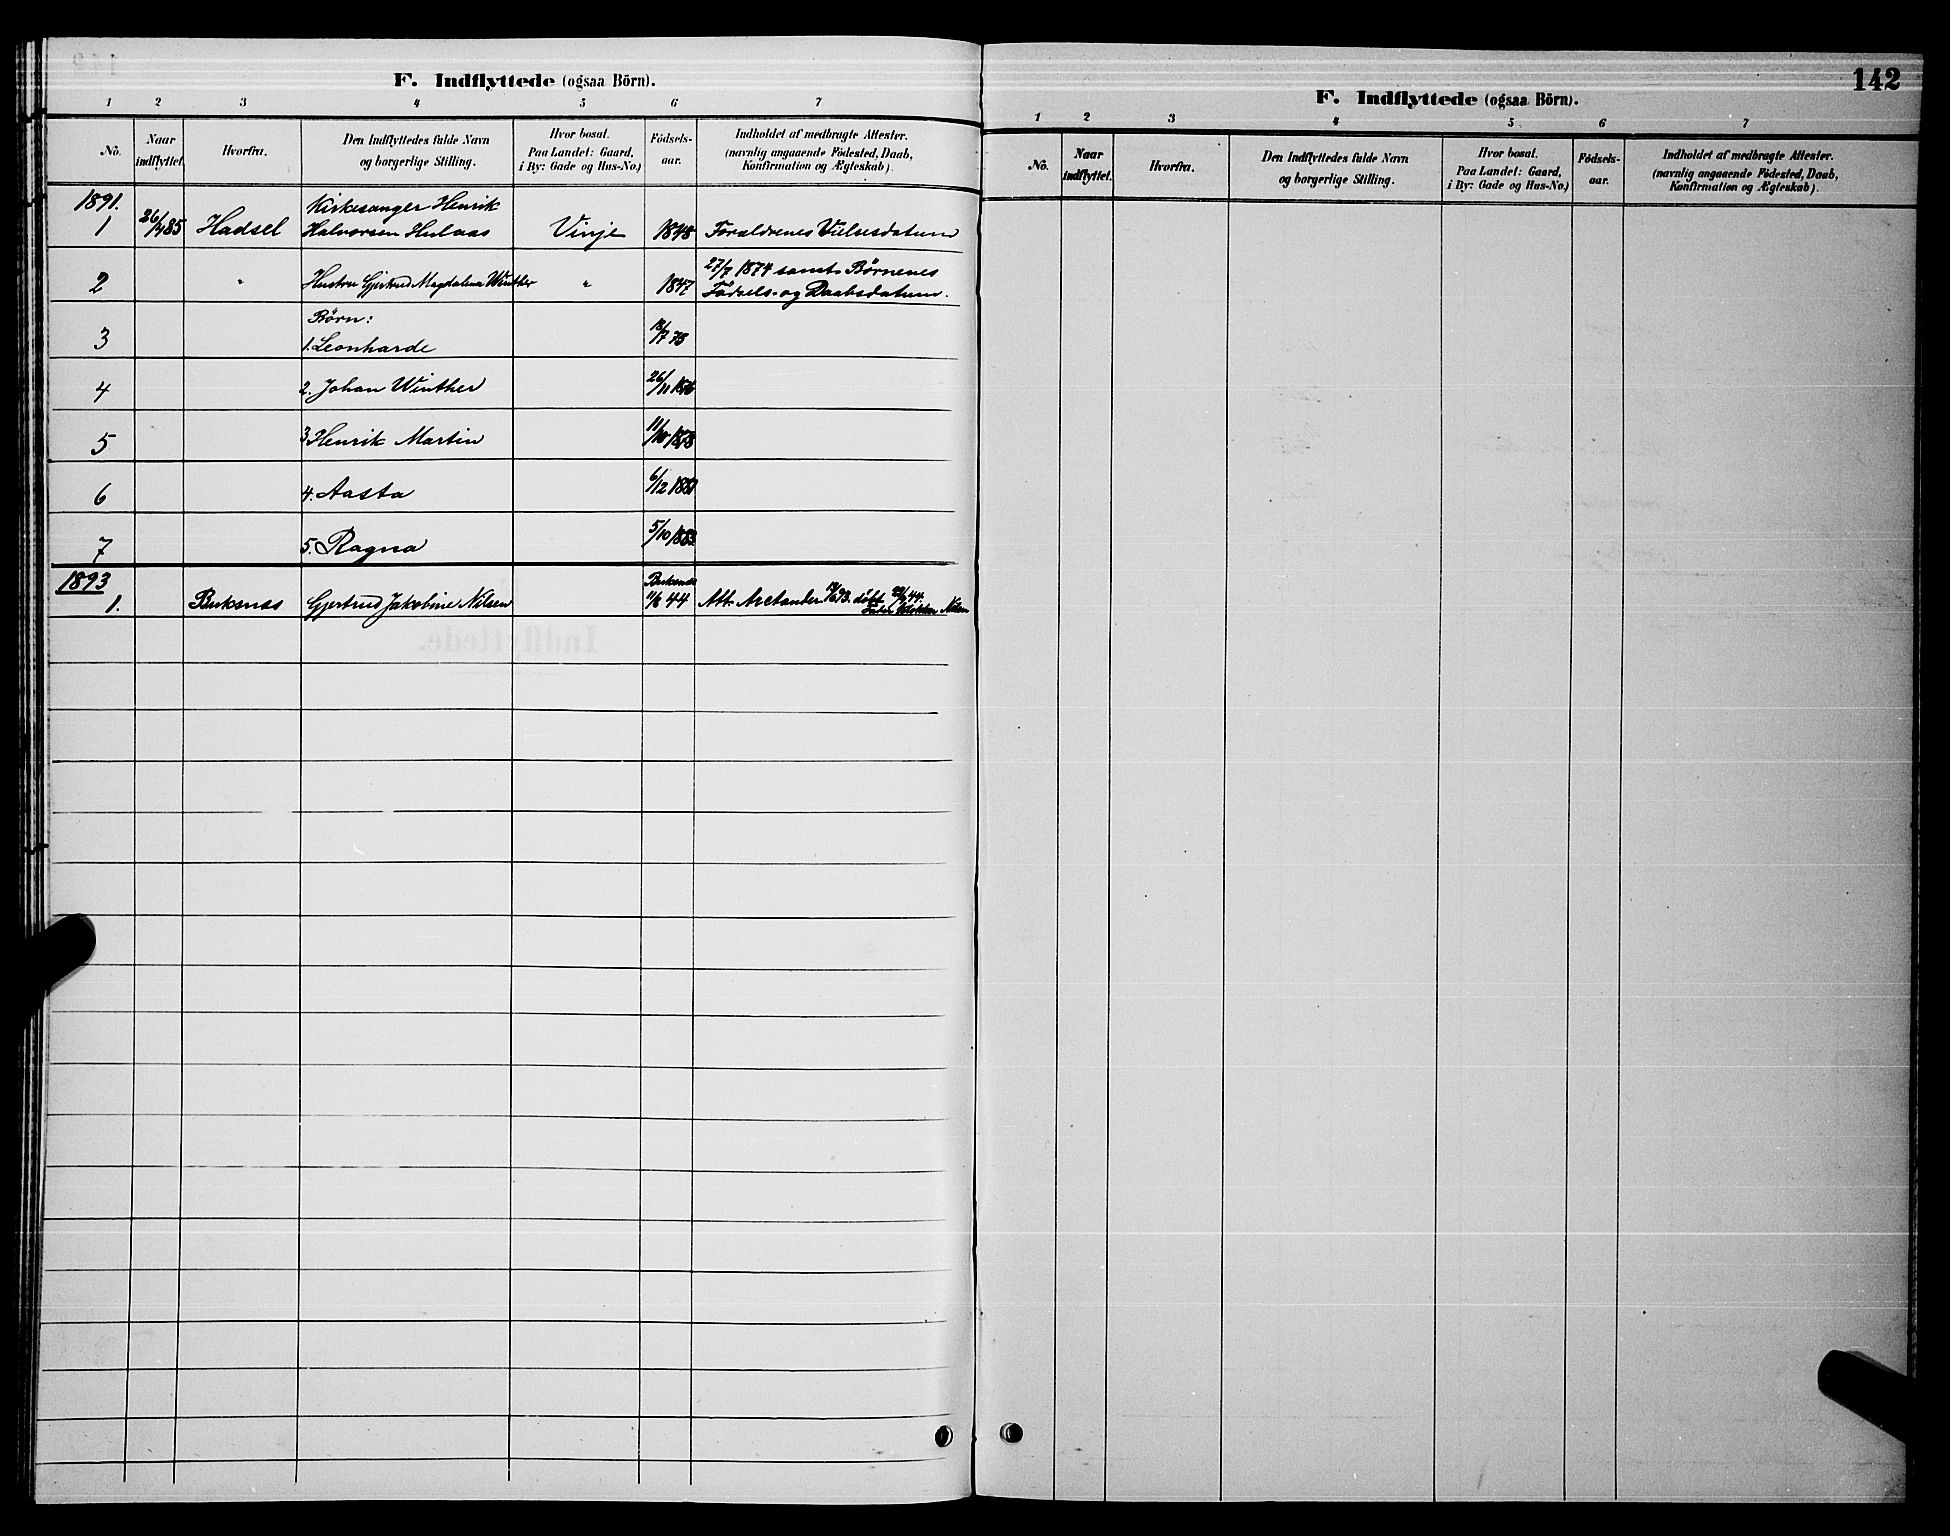 F. Indflyttede (ogsaa Börn).
1 2 3 4 5 6 7
No. Naar indflyttet. Hvorfra. Den Indflyttedes fulde Navn og borgerlige Stilling. Hvor bosat. Paa Landet: Gaard, i By: Gade og Hus-No.) Födsels-aar. Indholdet af medbragte Attester. (navnlig angaaende Födested, Daab, Konfirmation og Ægteskab).
1891.
Kirkesanger Henrik
1 Hadsel Halvorsen Hulaas Vinje 1848 Forældrenes Vielsesdatum
2 " Hustru Gjertrud Magdalena Winther " 1847 27/7 1874 samt Børnenes
Fødsels- og Daabsdatum.
Børn:
3 1. Leonharde 18/7 75
4 2. Johan Winther 26/11 1876
5 3 Henrik Martin 11/10 1878
6 4. Aasta 6/12 1881
7 5. Ragna 5/10 1883
1893
Buksnæs
1. Buksnæs Gjertrud Jakobine Nilsen 11/6 44 Att. Arctander 93. døbt 44.
Fader Nilsen
142
F. Indflyttede (ogsaa Börn).
1 2 3 4 5 6 7
No. Naar indflyttet. Hvorfra. Den Indflyttedes fulde Navn og borgerlige Stilling. Hvor bosat. Paa Landet: Gaard, i By: Gade og Hus-No.) Födsels-aar. Indholdet af medbragte Attester. (navnlig angaaende Födested, Daab, Konfirmation og Ægteskab).